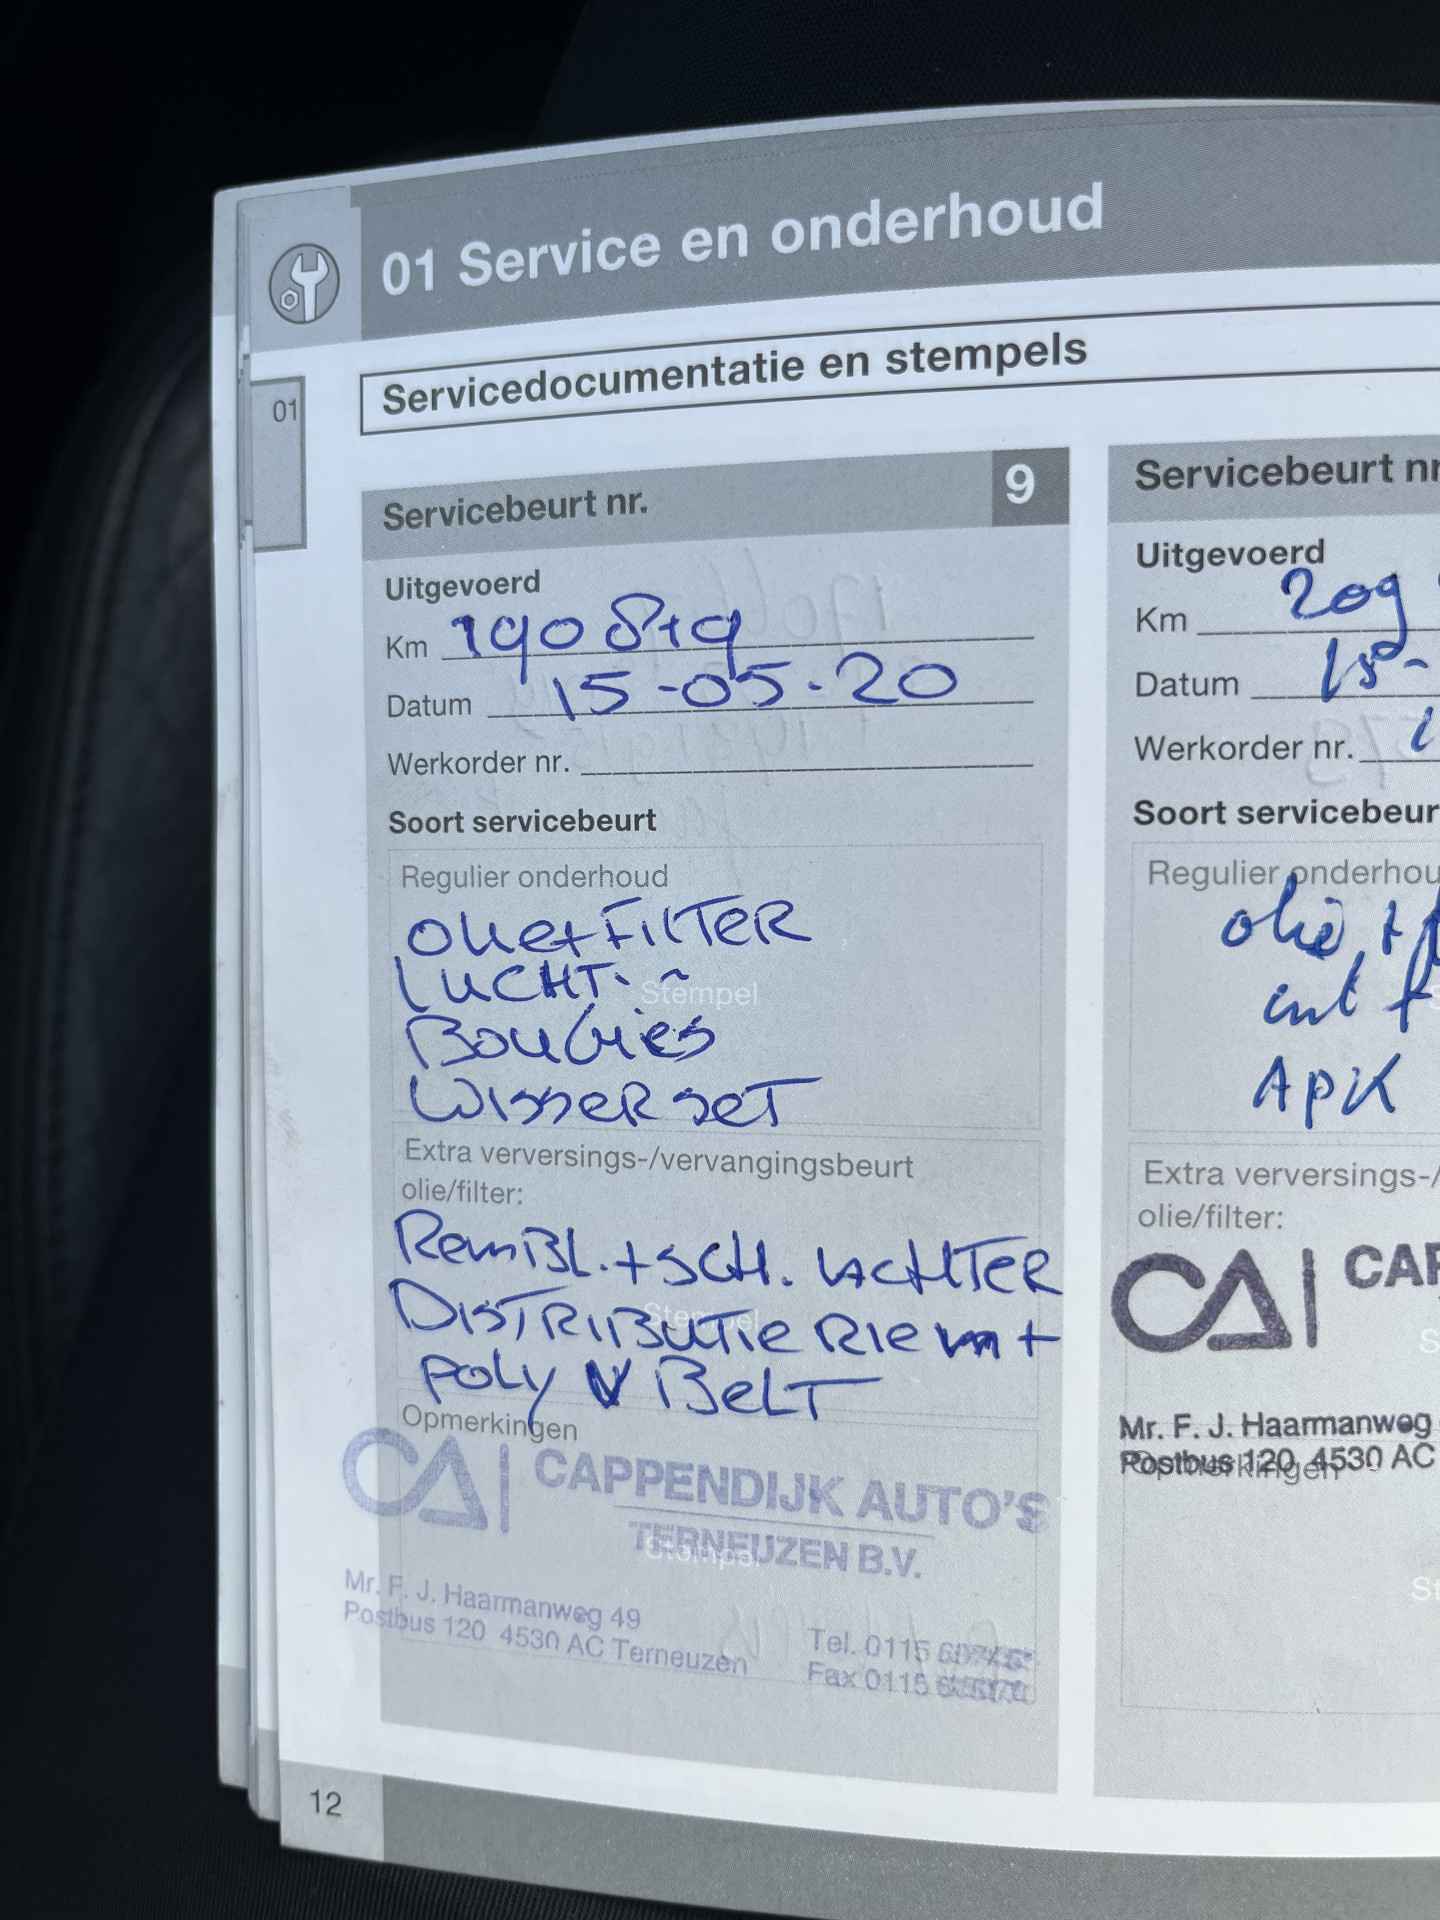 01 Service en onderhoud
Servicedocumentatie en stempels
01
Servicebeurt nr. 9
Uitgevoerd
Km 190819
Datum 15-05-20
Werkorder nr.
Soort servicebeurt
Regulier onderhoud
Olie+FILTER
LUCHT
Stempel
BOUGIES
WISSERSET
Extra verversings-/vervangingsbeurt
olie/filter:
RemBL.+SCH. ACHTER
Stempel
DISTRIBUTIE RIEM +
POLY V BELT
Opmerkingen
CA CAPPENDIJK AUTO'S
TERNEUZEN B.V.
Stempel
Mr. F. J. Haarmanweg 49
Postbus 120 4530 AC Terneuzen
Tel. 0115
Fax 0115
Servicebeurt nr
Uitgevoerd
Km 209
Datum 15-
Werkorder nr.
Soort servicebeur
Regulier onderhou
olie +
int f
APK
Extra verversings-/
olie/filter:
CA CAP
Mr. F. J. Haarmanweg
Postbus 120 4530 AC
Opmerkingen
12